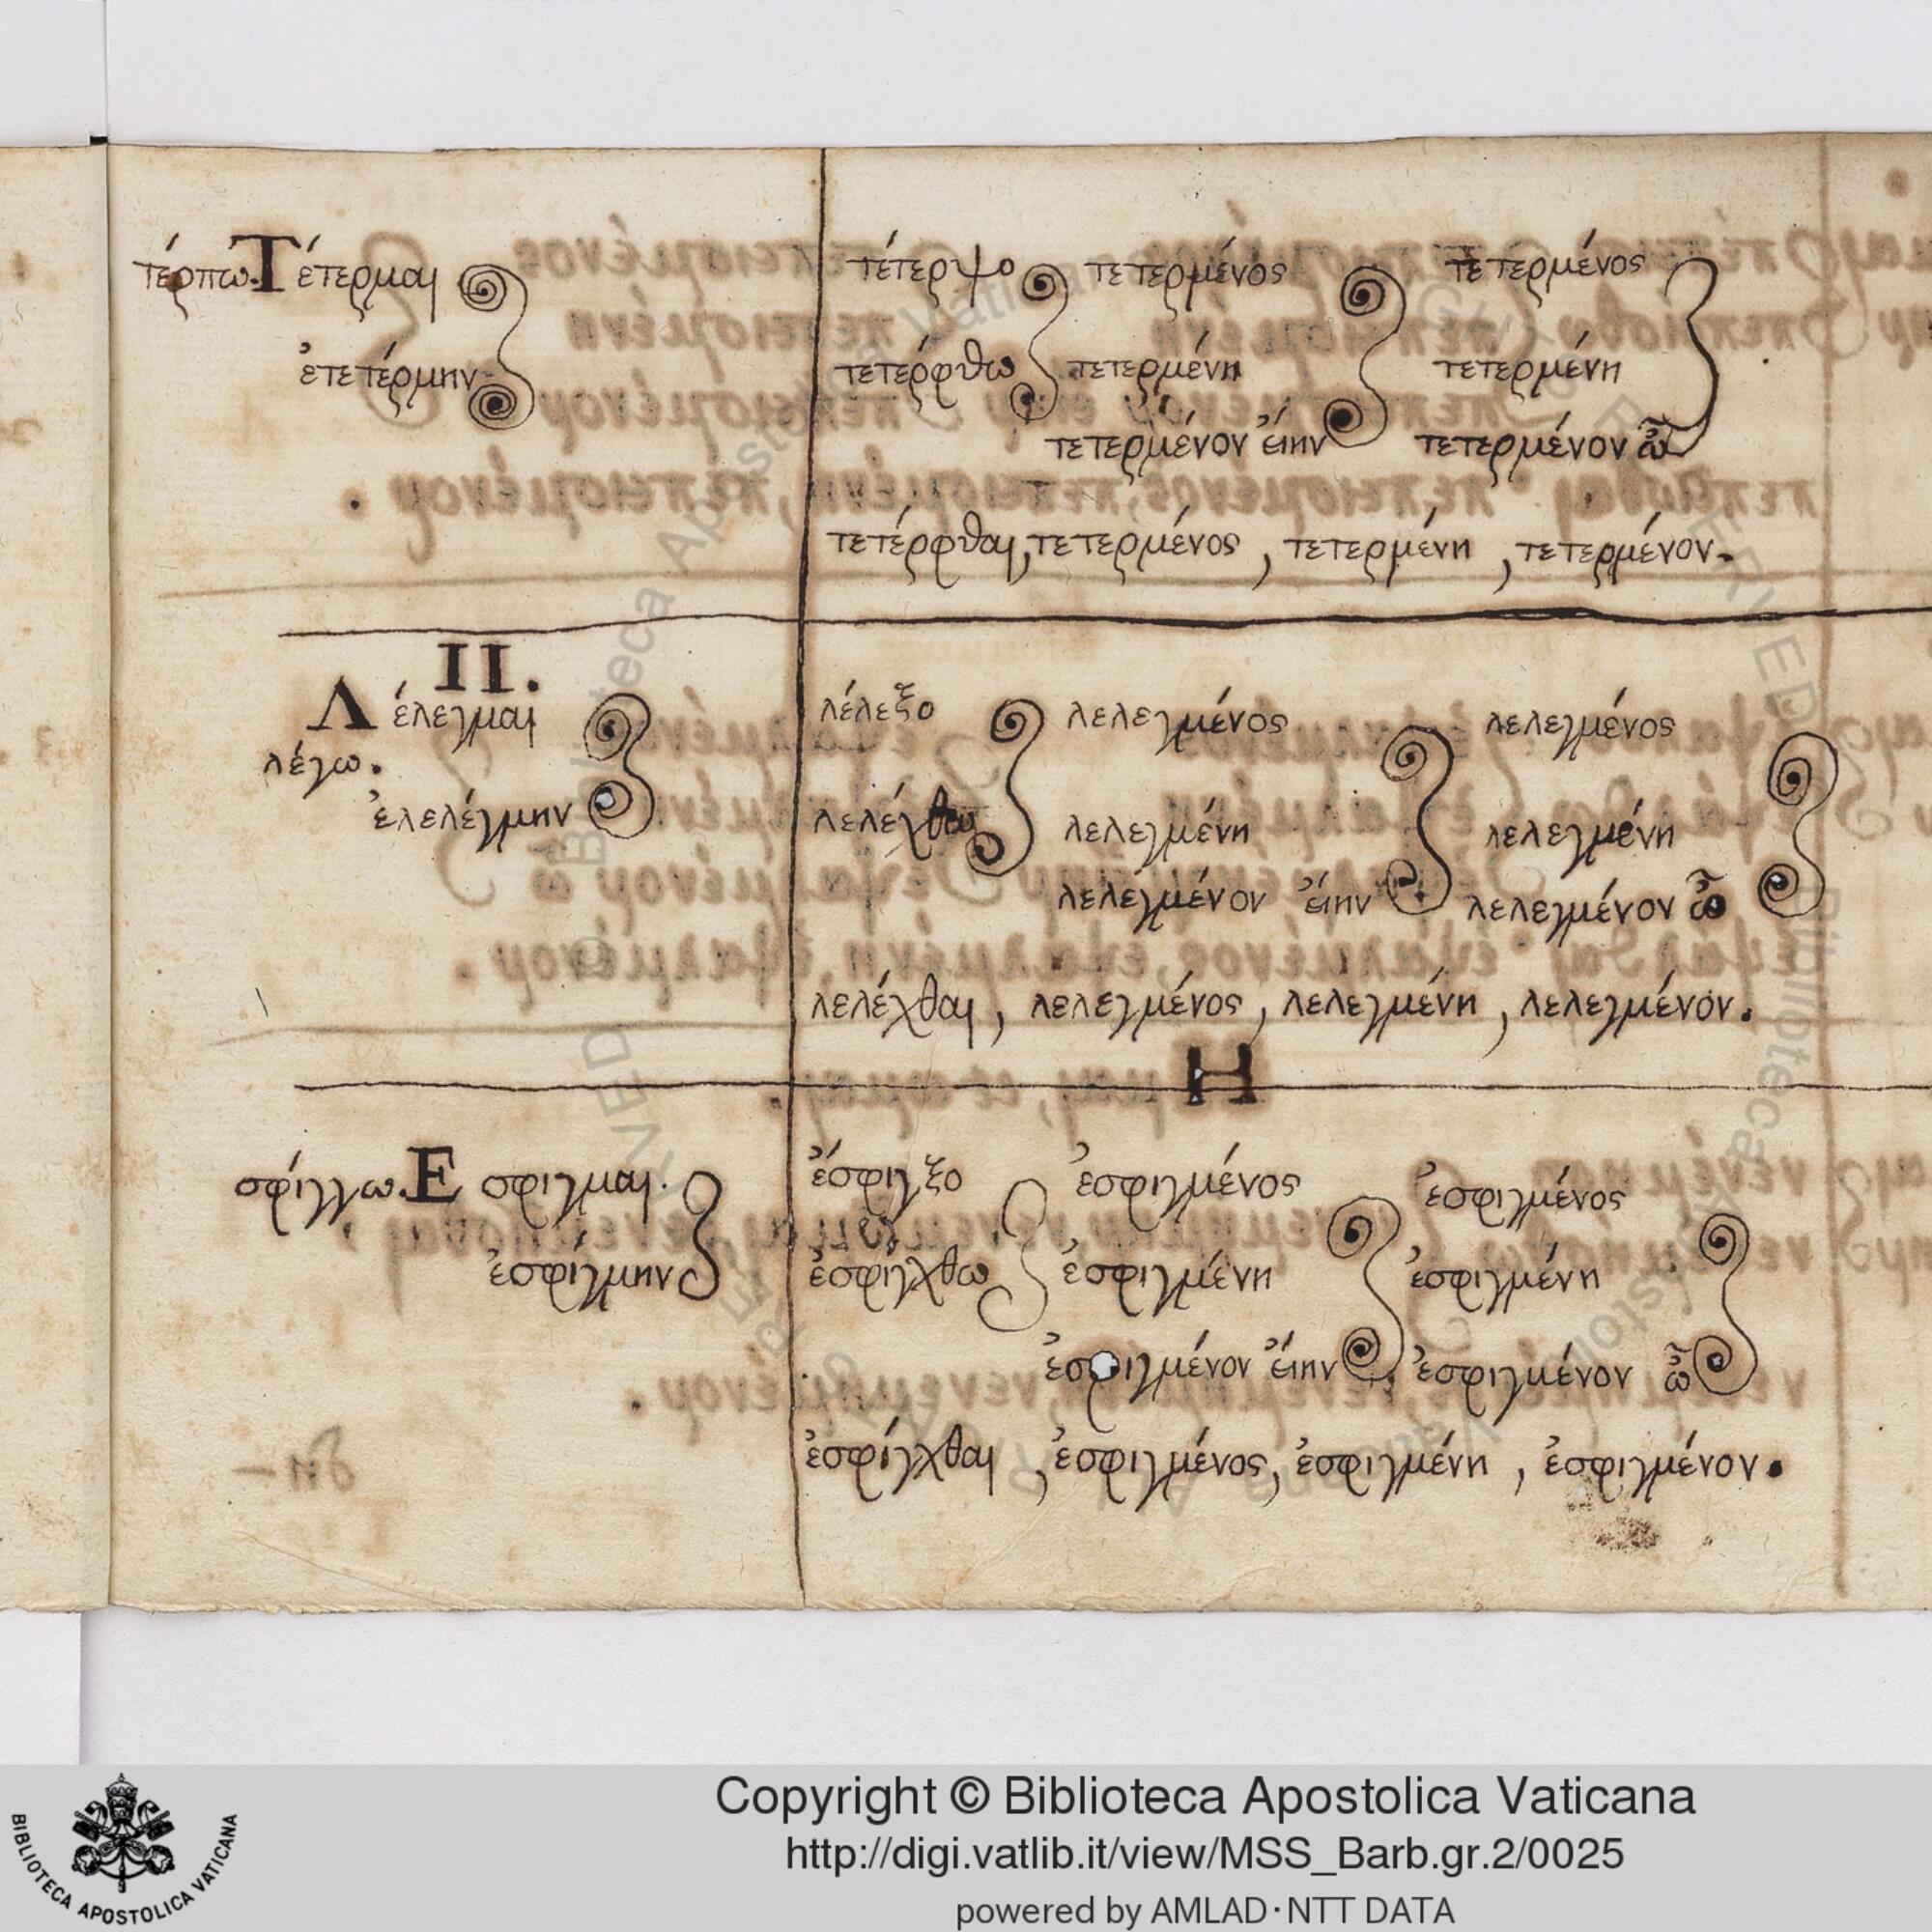 τέρπω. Τέτερμαι τέτερψο τετερμένος τετερμένος
ἐτετέρμην τετέρφθω τετερμένη τετερμένη
τετερμένον εἴην τετερμένον ὦ
τετέρφθαι, τετερμένος, τετερμένη, τετερμένον.
II.
Λέλεγμαι λέλεξο λελεγμένος λελεγμένος
λέγω.
ἐλελέγμην λελέχθω λελεγμένη λελεγμένη
λελεγμένον εἴην λελεγμένον ὦ
λελέχθαι, λελεγμένος, λελεγμένη, λελεγμένον.
H
σφίγγω. Εσφιγμαι. ἔσφιγξο ἐσφιγμένος ἐσφιγμένος
ἐσφίγμην ἐσφίγχθω ἐσφιγμένη ἐσφιγμένη
ἐσφιγμένον εἴην ἐσφιγμένον ὦ
ἐσφίγχθαι, ἐσφιγμένος, ἐσφιγμένη, ἐσφιγμένον.
Copyright © Biblioteca Apostolica Vaticana
http://digi.vatlib.it/view/MSS_Barb.gr.2/0025
powered by AMLAD·NTT DATA
BIBLIOTECA APOSTOLICA VATICANA